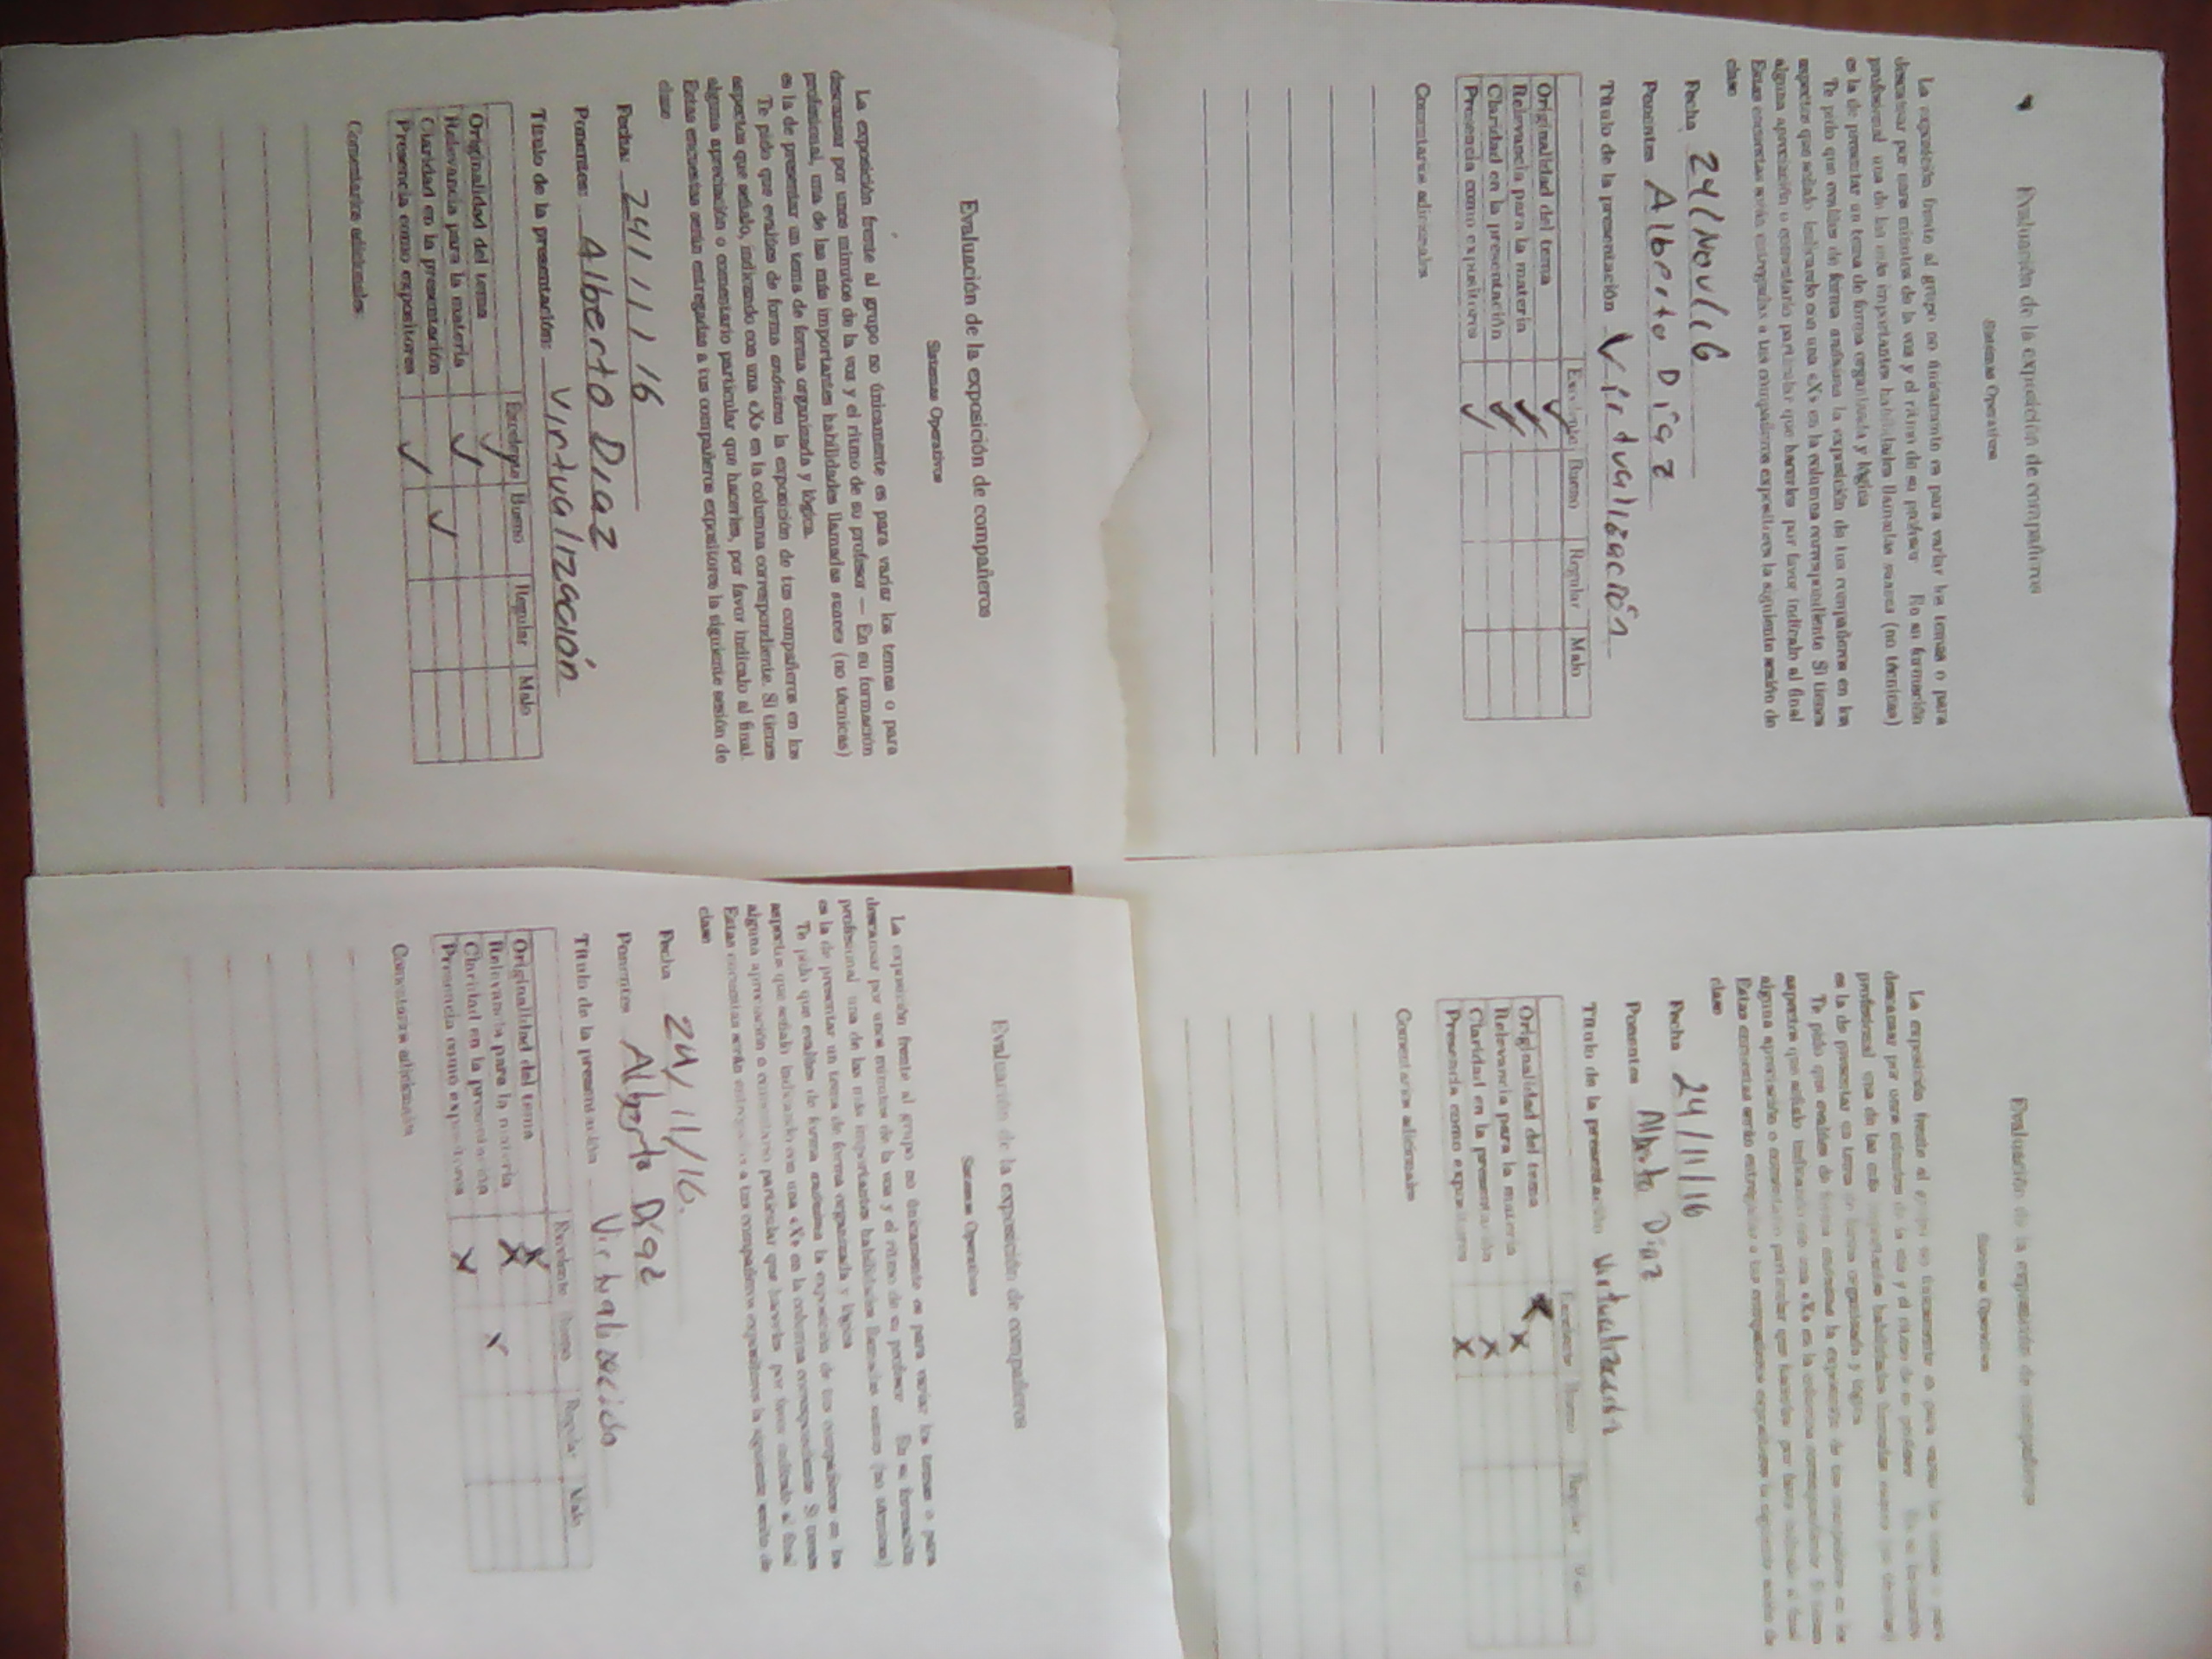 Evaluación de la exposición de compañeros
Sistemas Operativos
La exposición frente al grupo no únicamente es para variar los temas o para
descansar por unos minutos de la voz y el ritmo de su profesor — En su formación
profesional, una de las más importantes habilidades llamadas suaves (no técnicas)
es la de presentar un tema de forma organizada y lógica.
Te pido que evalúes de forma anónima la exposición de tus compañeros en los
aspectos que señalo, indicando con una «X» en la columna correspondiente. Si tienes
alguna apreciación o comentario particular que hacerles, por favor indícalo al final.
Estas encuestas serán entregadas a tus compañeros expositores la siguiente sesión de
clase
Fecha: 24/11/16
Ponentes: Alberto Díaz
Título de la presentación: Virtualización
Excelente Bueno Regular Malo
Originalidad del tema ✓
Relevancia para la materia ✓
Claridad en la presentación ✓
Presencia como expositores ✓
Comentarios adicionales:
Evaluación de la exposición de compañeros
Sistemas Operativos
La exposición frente al grupo no únicamente es para variar los temas o para
descansar por unos minutos de la voz y el ritmo de su profesor En su formación
profesional una de las más importantes habilidades llamadas suaves (no técnicas)
es la de presentar un tema de forma organizada y lógica
Te pido que evalúes de forma anónima la exposición de tus compañeros en los
aspectos que señalo indicando con una «X» en la columna correspondiente Si tienes
alguna apreciación o comentario particular que hacerles por favor indícalo al final
Estas encuestas serán entregadas a tus compañeros expositores la siguiente sesión de
clase
Fecha 24/Nov/16
Ponentes Alberto Díaz
Título de la presentación Virtualización
Excelente Bueno Regular Malo
Originalidad del tema ✓
Relevancia para la materia ✓
Claridad en la presentación ✓
Presencia como expositores ✓
Comentarios adicionales
Evaluación de la exposición de compañeros
Sistemas Operativos
La exposición frente al grupo no únicamente es para variar los temas o para
descansar por unos minutos de la voz y el ritmo de su profesor En su formación
profesional una de las más importantes habilidades llamadas suaves (no técnicas)
es la de presentar un tema de forma organizada y lógica
Te pido que evalúes de forma anónima la exposición de tus compañeros en los
aspectos que señalo indicando con una «X» en la columna correspondiente Si tienes
alguna apreciación o comentario particular que hacerles por favor indícalo al final
Estas encuestas serán entregadas a tus compañeros expositores la siguiente sesión de
clase
Fecha 24/11/16.
Ponentes Alberto Díaz
Título de la presentación Virtualización
Excelente Bueno Regular Malo
Originalidad del tema X
Relevancia para la materia X
Claridad en la presentación X
Presencia como expositores X
Comentarios adicionales
Evaluación de la exposición de compañeros
Sistemas Operativos
La exposición frente al grupo no únicamente es para variar los temas o para
descansar por unos minutos de la voz y el ritmo de su profesor En su formación
profesional una de las más importantes habilidades llamadas suaves (no técnicas)
es la de presentar un tema de forma organizada y lógica
Te pido que evalúes de forma anónima la exposición de tus compañeros en los
aspectos que señalo indicando con una «X» en la columna correspondiente Si tienes
alguna apreciación o comentario particular que hacerles por favor indícalo al final
Estas encuestas serán entregadas a tus compañeros expositores la siguiente sesión de
clase
Fecha 24/11/16
Ponentes Alberto Díaz
Título de la presentación Virtualización
Excelente Bueno Regular Malo
Originalidad del tema X
Relevancia para la materia X
Claridad en la presentación X
Presencia como expositores X
Comentarios adicionales